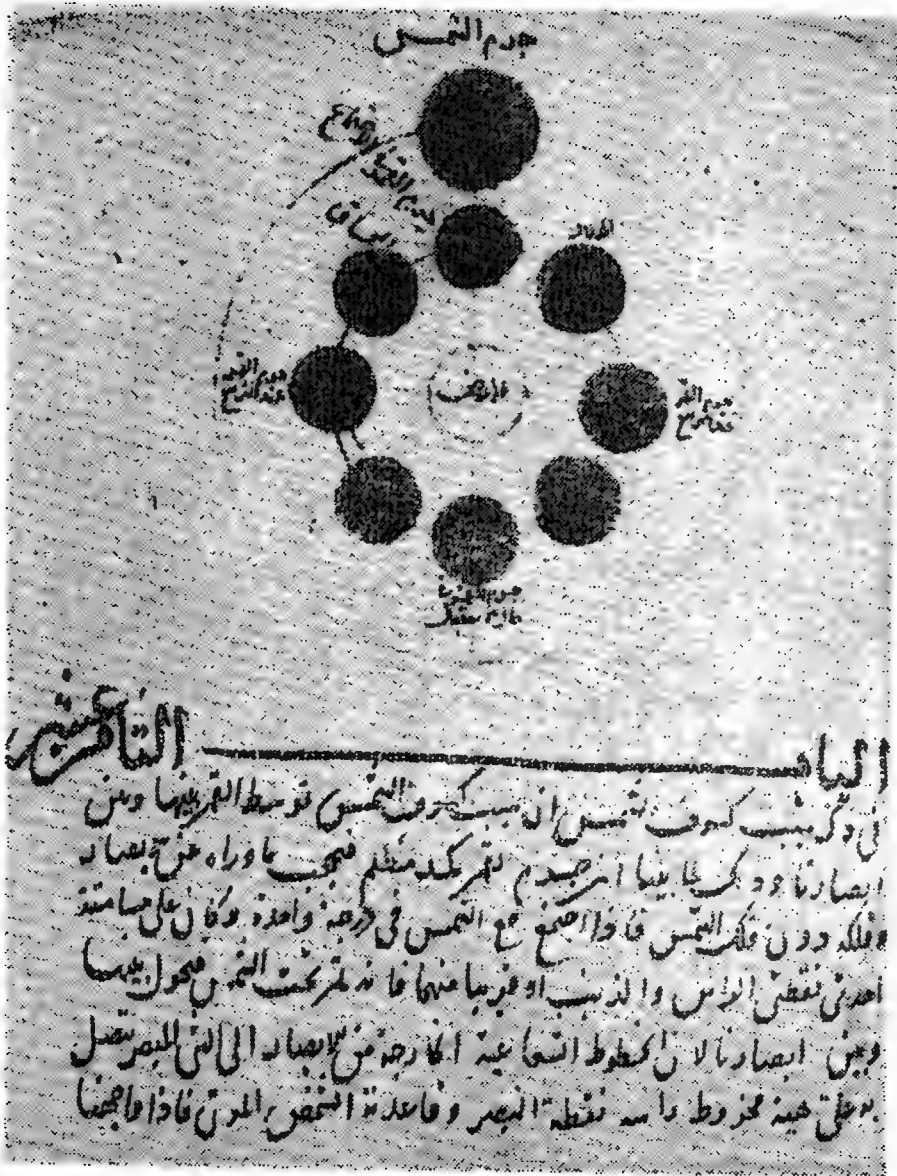 جرم الشمس
جرم القمر
الاجتماع
المحاق
الهلال
الارض
جرم القمر
عند التربيع
جرم القمر
عند التربيع
جرم القمر
الباب الثامن عشر
في ذكر سبب كسوف الشمس ان سبب كسوف الشمس توسط القمر بينها وبين
ابصارنا وذلك لما بينا ان جرم القمر كمد مظلم فيحجب ما وراه عن الابصار
وفلكه دون فلك الشمس فاذا اجتمع مع الشمس في درجة واحدة وكان على مسامتة
احدى نقطتي الراس والذنب او قريبا منهما فانه يمر تحت الشمس فيحول بينها
وبين ابصارنا لان الخطوط الشعاعية الخارجة من الابصار الى الشي المبصر تتصل
به على هيئة مخروط راسه نقطة البصر وقاعدته الشخص المرئ فاذا واجهنا